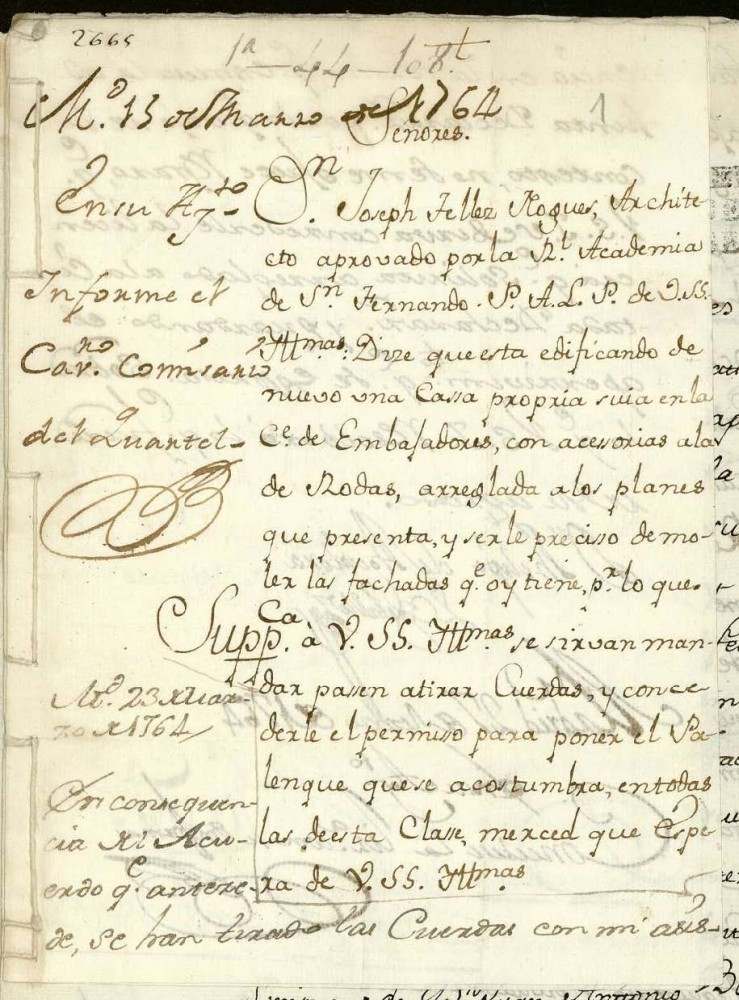 2665
1ª - 44 - 108.t
M.d 13 de Marzo de 1764
1
Señores.
En su Ay.to
Informe el
Cav.no Comisario
del Quartel.
D.n Joseph Tellez Nogues, Archite-
cto aprovado por la R.l Academia
de S.n Fernando. P. A. L. P. de V. SS.
Illmas: Dize que esta edificando de
nuevo una Cassa propria suia en la
C.e de Embajadores, con acesorias a la
de Rodas, arreglada a los planes
que presenta, y serle preciso demo-
ler las fachadas q.e oy tiene, p.r lo que.
Supp.ca à V. SS. Illmas se sirvan man-
dar pasen a tirar Cuerdas, y conce-
derle el permiso para poner el Pa-
lenque que se acostumbra, en todas
las de esta Clase, merced que Espe-
ra de V. SS. Illmas
M.d 23 de Mar-
zo de 1764
En consequen-
cia del Acu-
erdo q.e antece-
de, se han tirado las Cuerdas con mi asis-